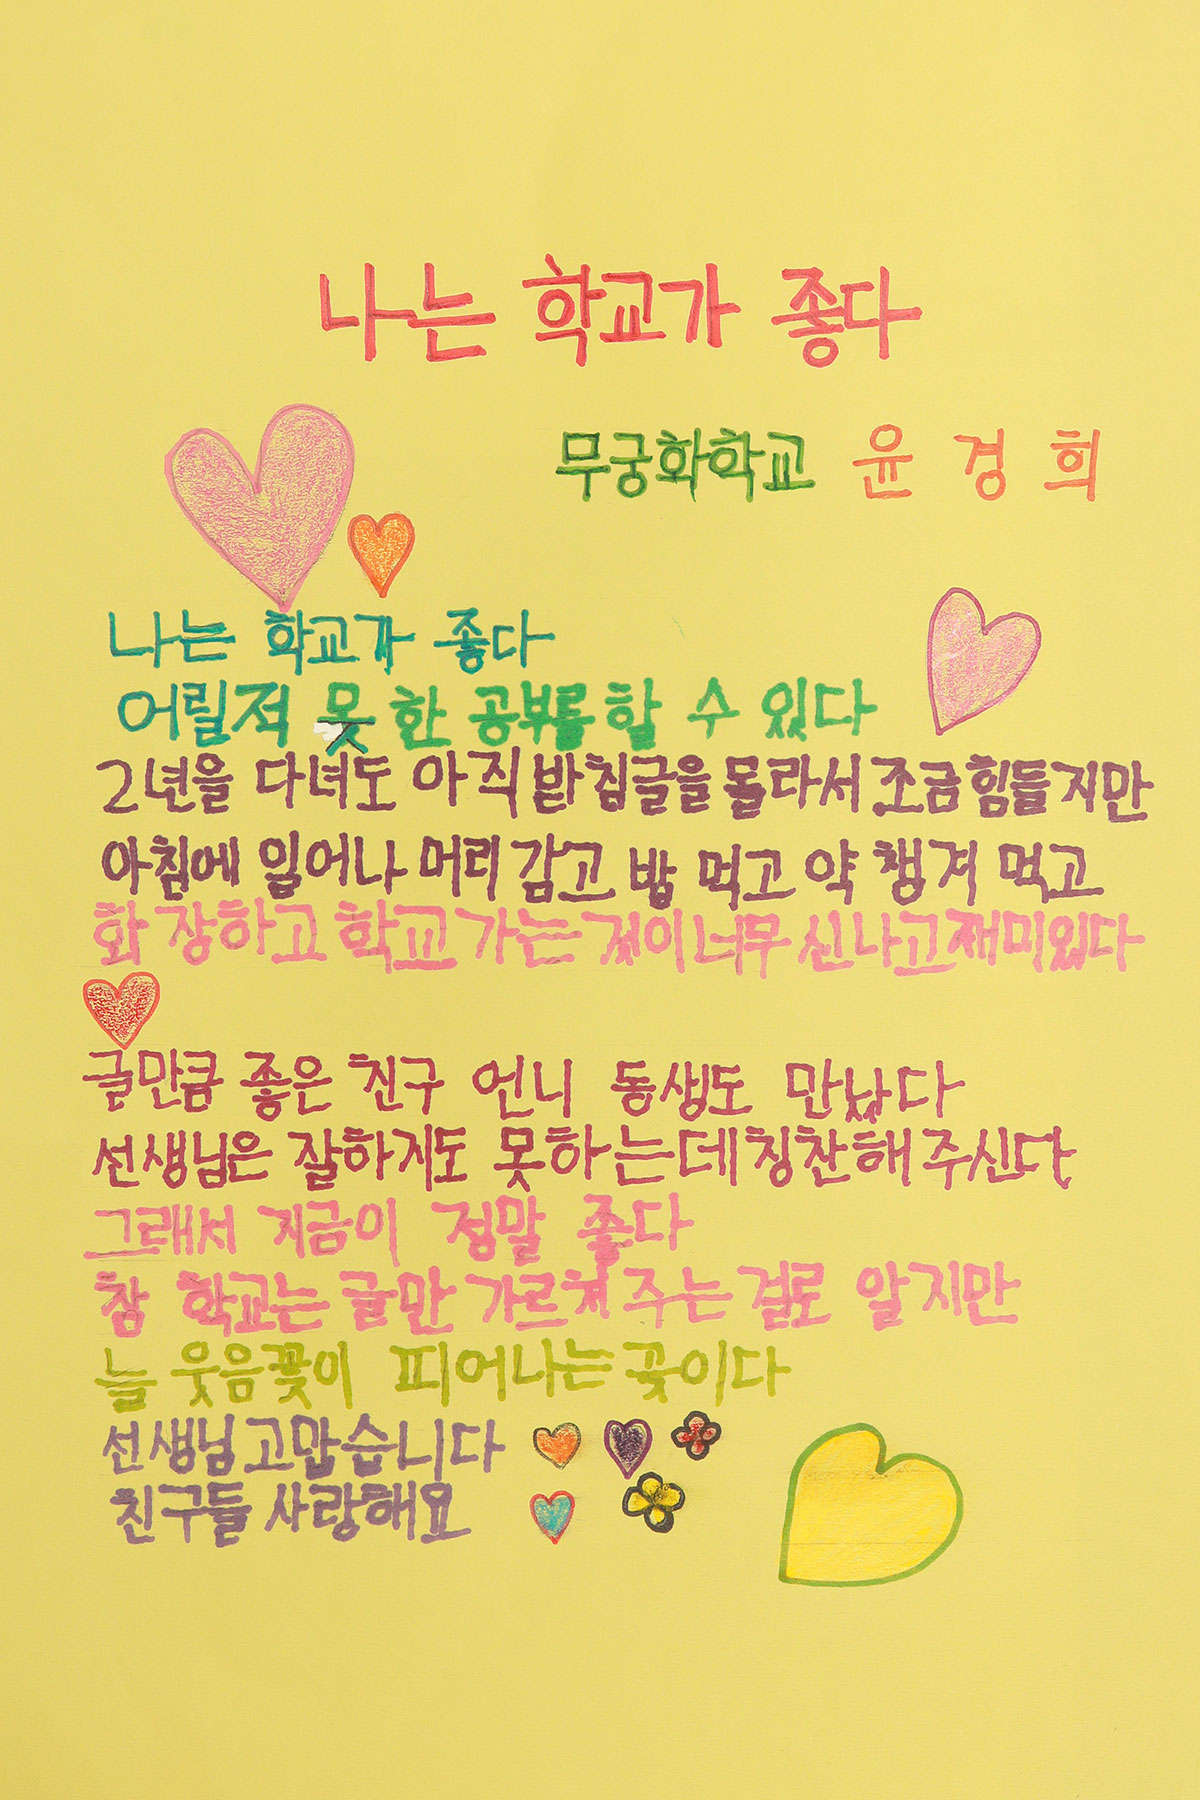 나는 학교가 좋다
무궁화학교 윤 경 희
나는 학교가 좋다
어릴적 못 한 공부를 할 수 있다
2년을 다녀도 아직 받침글을 몰라서 조금 힘들지만
아침에 일어나 머리 감고 밥 먹고 약 챙겨 먹고
화 장하고 학교 가는 것이 너무 신나고 재미있다
글만큼 좋은 친구 언니 동생도 만났다
선생님은 잘하지도 못하는데 칭찬해 주신다
그래서 지금이 정말 좋다
참 학교는 글만 가르쳐 주는 걸로 알지만
늘 웃음꽃이 피어나는 꽃이다
선생님 고맙습니다
친구들 사랑해요